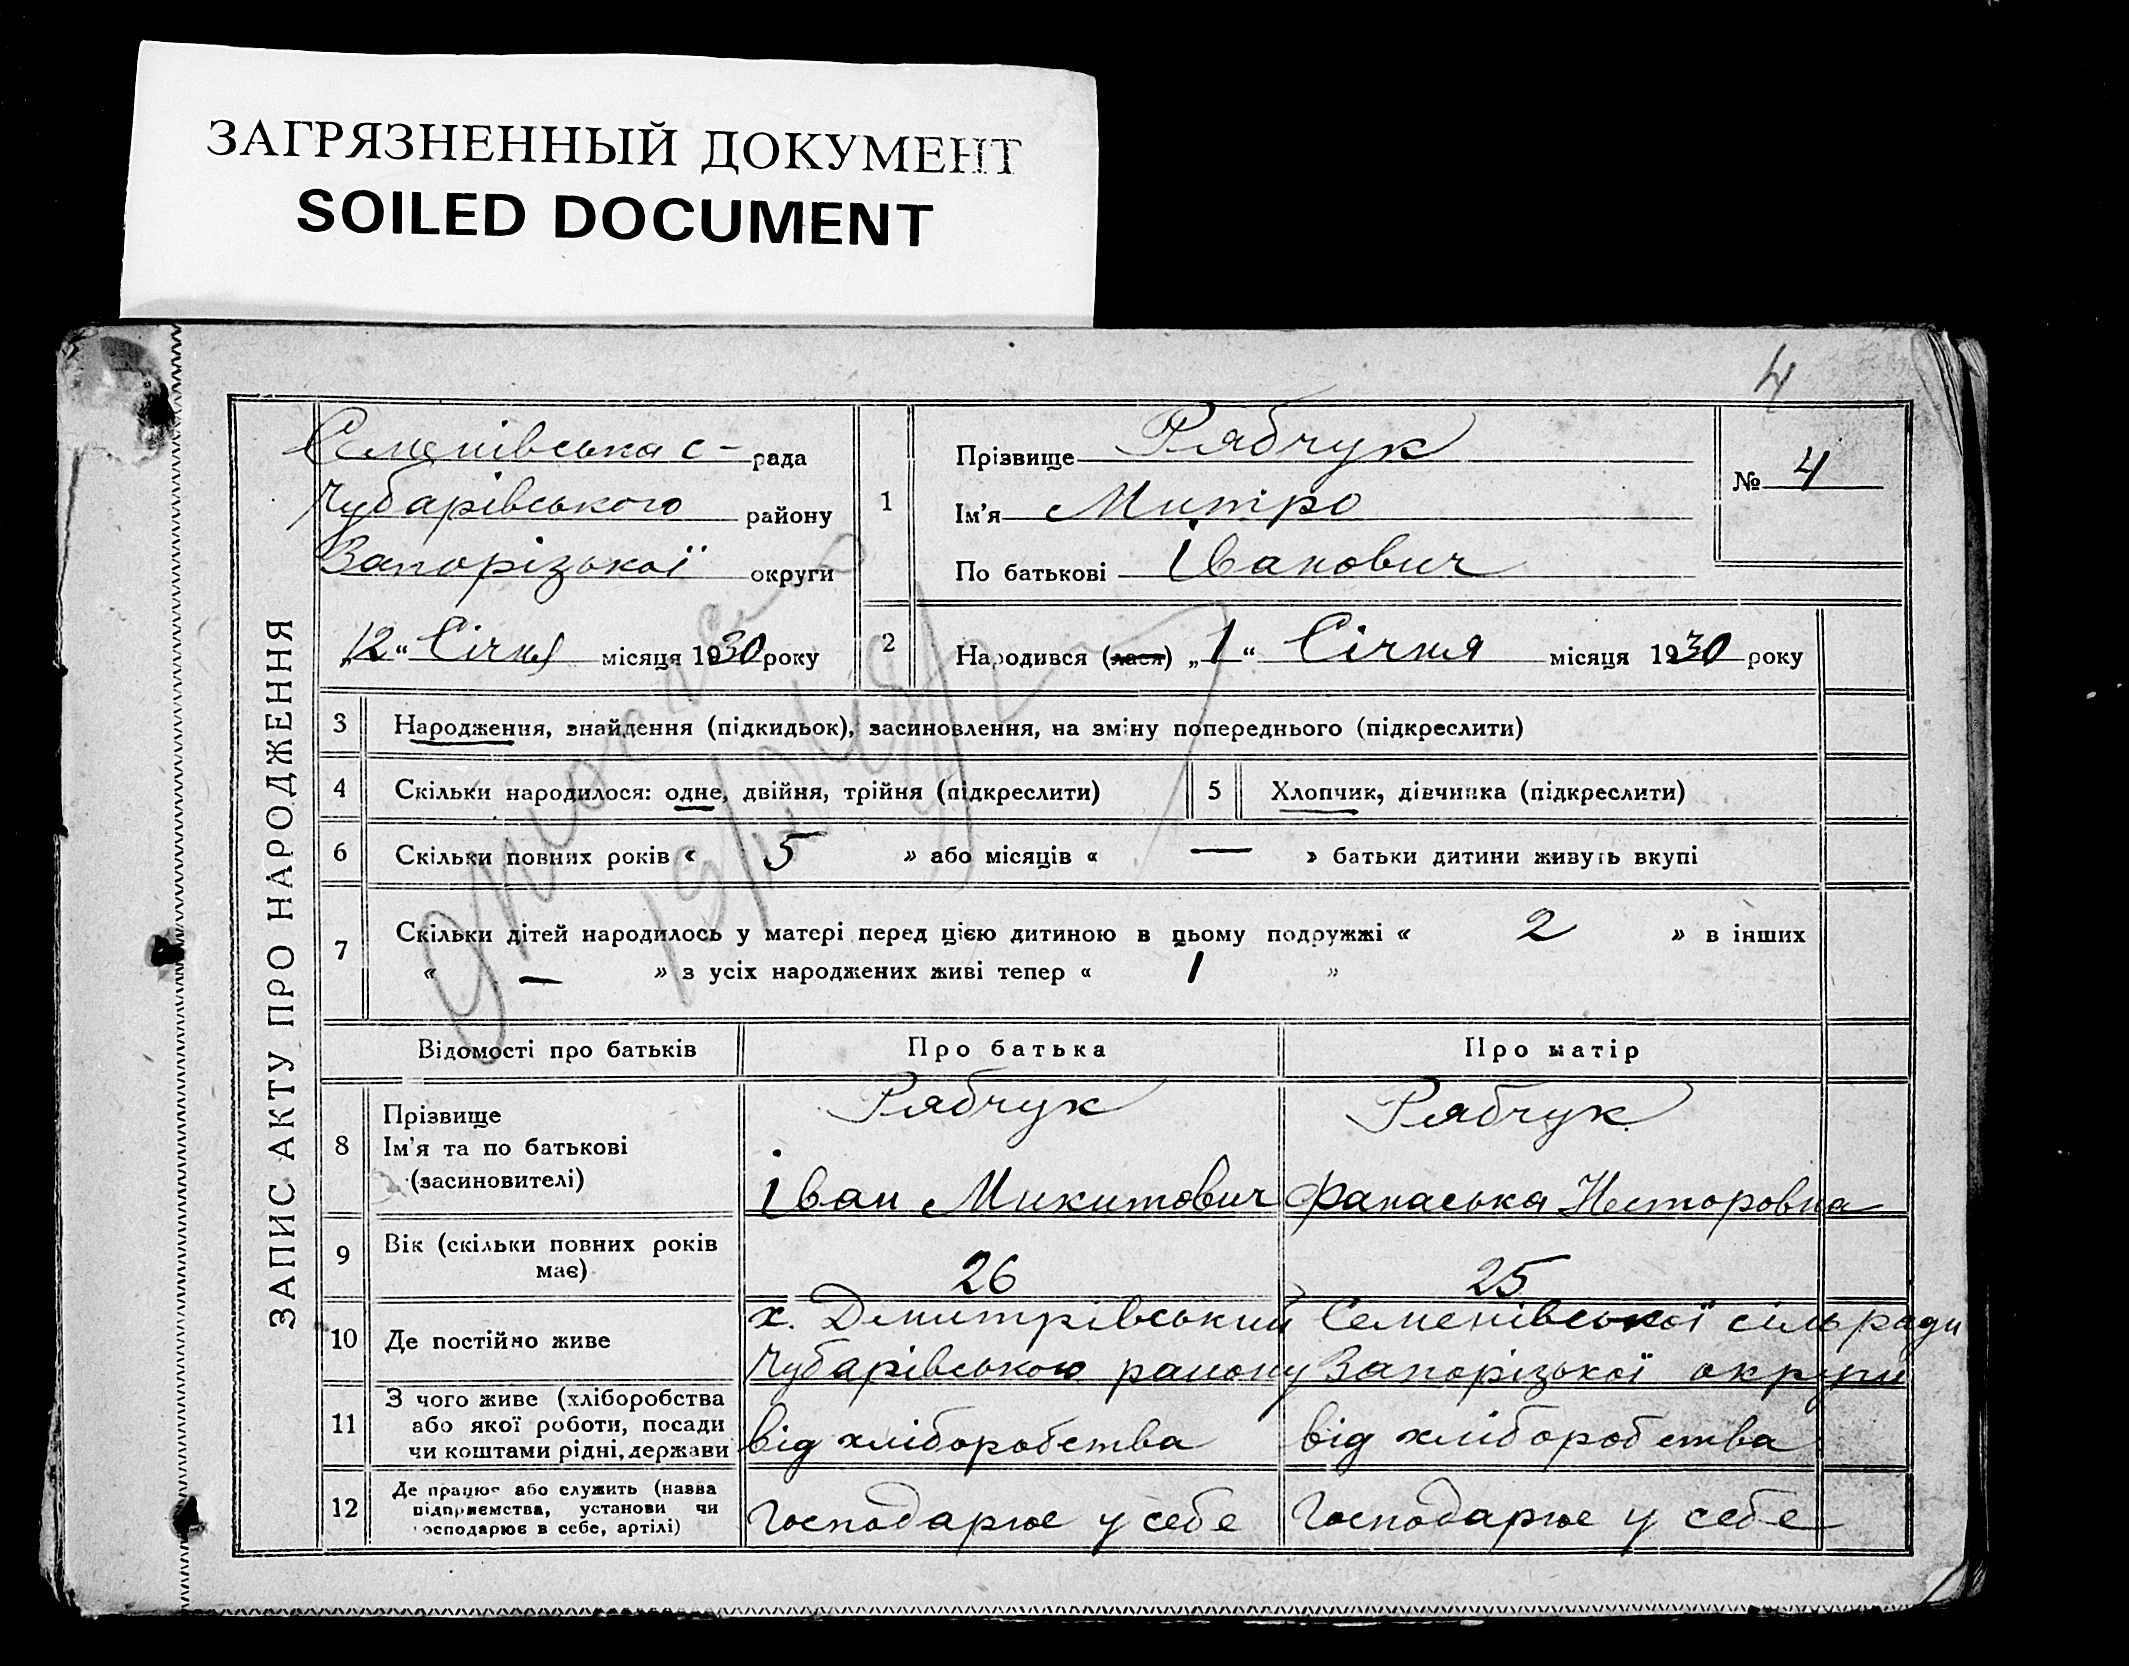 ЗАГРЯЗНЕННЫЙ ДОКУМЕНТ
SOILED DOCUMENT
4
ЗАПИС АКТУ ПРО НАРОДЖЕННЯ
Семенівська с – рада
Чубарівського району
Запорізької округи
„12“ Січня місяця 1930 року
1
Прізвище Рябчук
Ім'я Митро
По батькові Іванович
№ 4
2
Народився (лася) „1“ Січня місяця 1930 року
3 Народження, знайдення (підкидьок), засиновлення, на зміну попереднього (підкреслити)
4 Скільки народилося: одне, двійня, трійня (підкреслити) 5 Хлопчик, дівчинка (підкреслити)
6 Скільки повних років « 5 » або місяців « — » батьки дитини живуть вкупі
7 Скільки дітей народилось у матері перед цією дитиною в цьому подружжі « 2 » в інших
« — » з усіх народжених живі тепер « 1 »
Відомості про батьків Про батька Про матір
8 Прізвище Рябчук Рябчук
Ім'я та по батькові
(засиновителі) Іван Микитович Фанаська Несторовна
9 Вік (скільки повних років
має) 26 25
10 Де постійно живе х. Дмитрівський Семенівської сільради
Чубарівського району Запорізької округи
11 З чого живе (хліборобства
або якої роботи, посади
чи коштами рідні, держави від хліборобства від хліборобства
12 Де працює або служить (назва
підприємства, установи чи
господарює в себе, артілі) Господарює у себе Господарює у себе